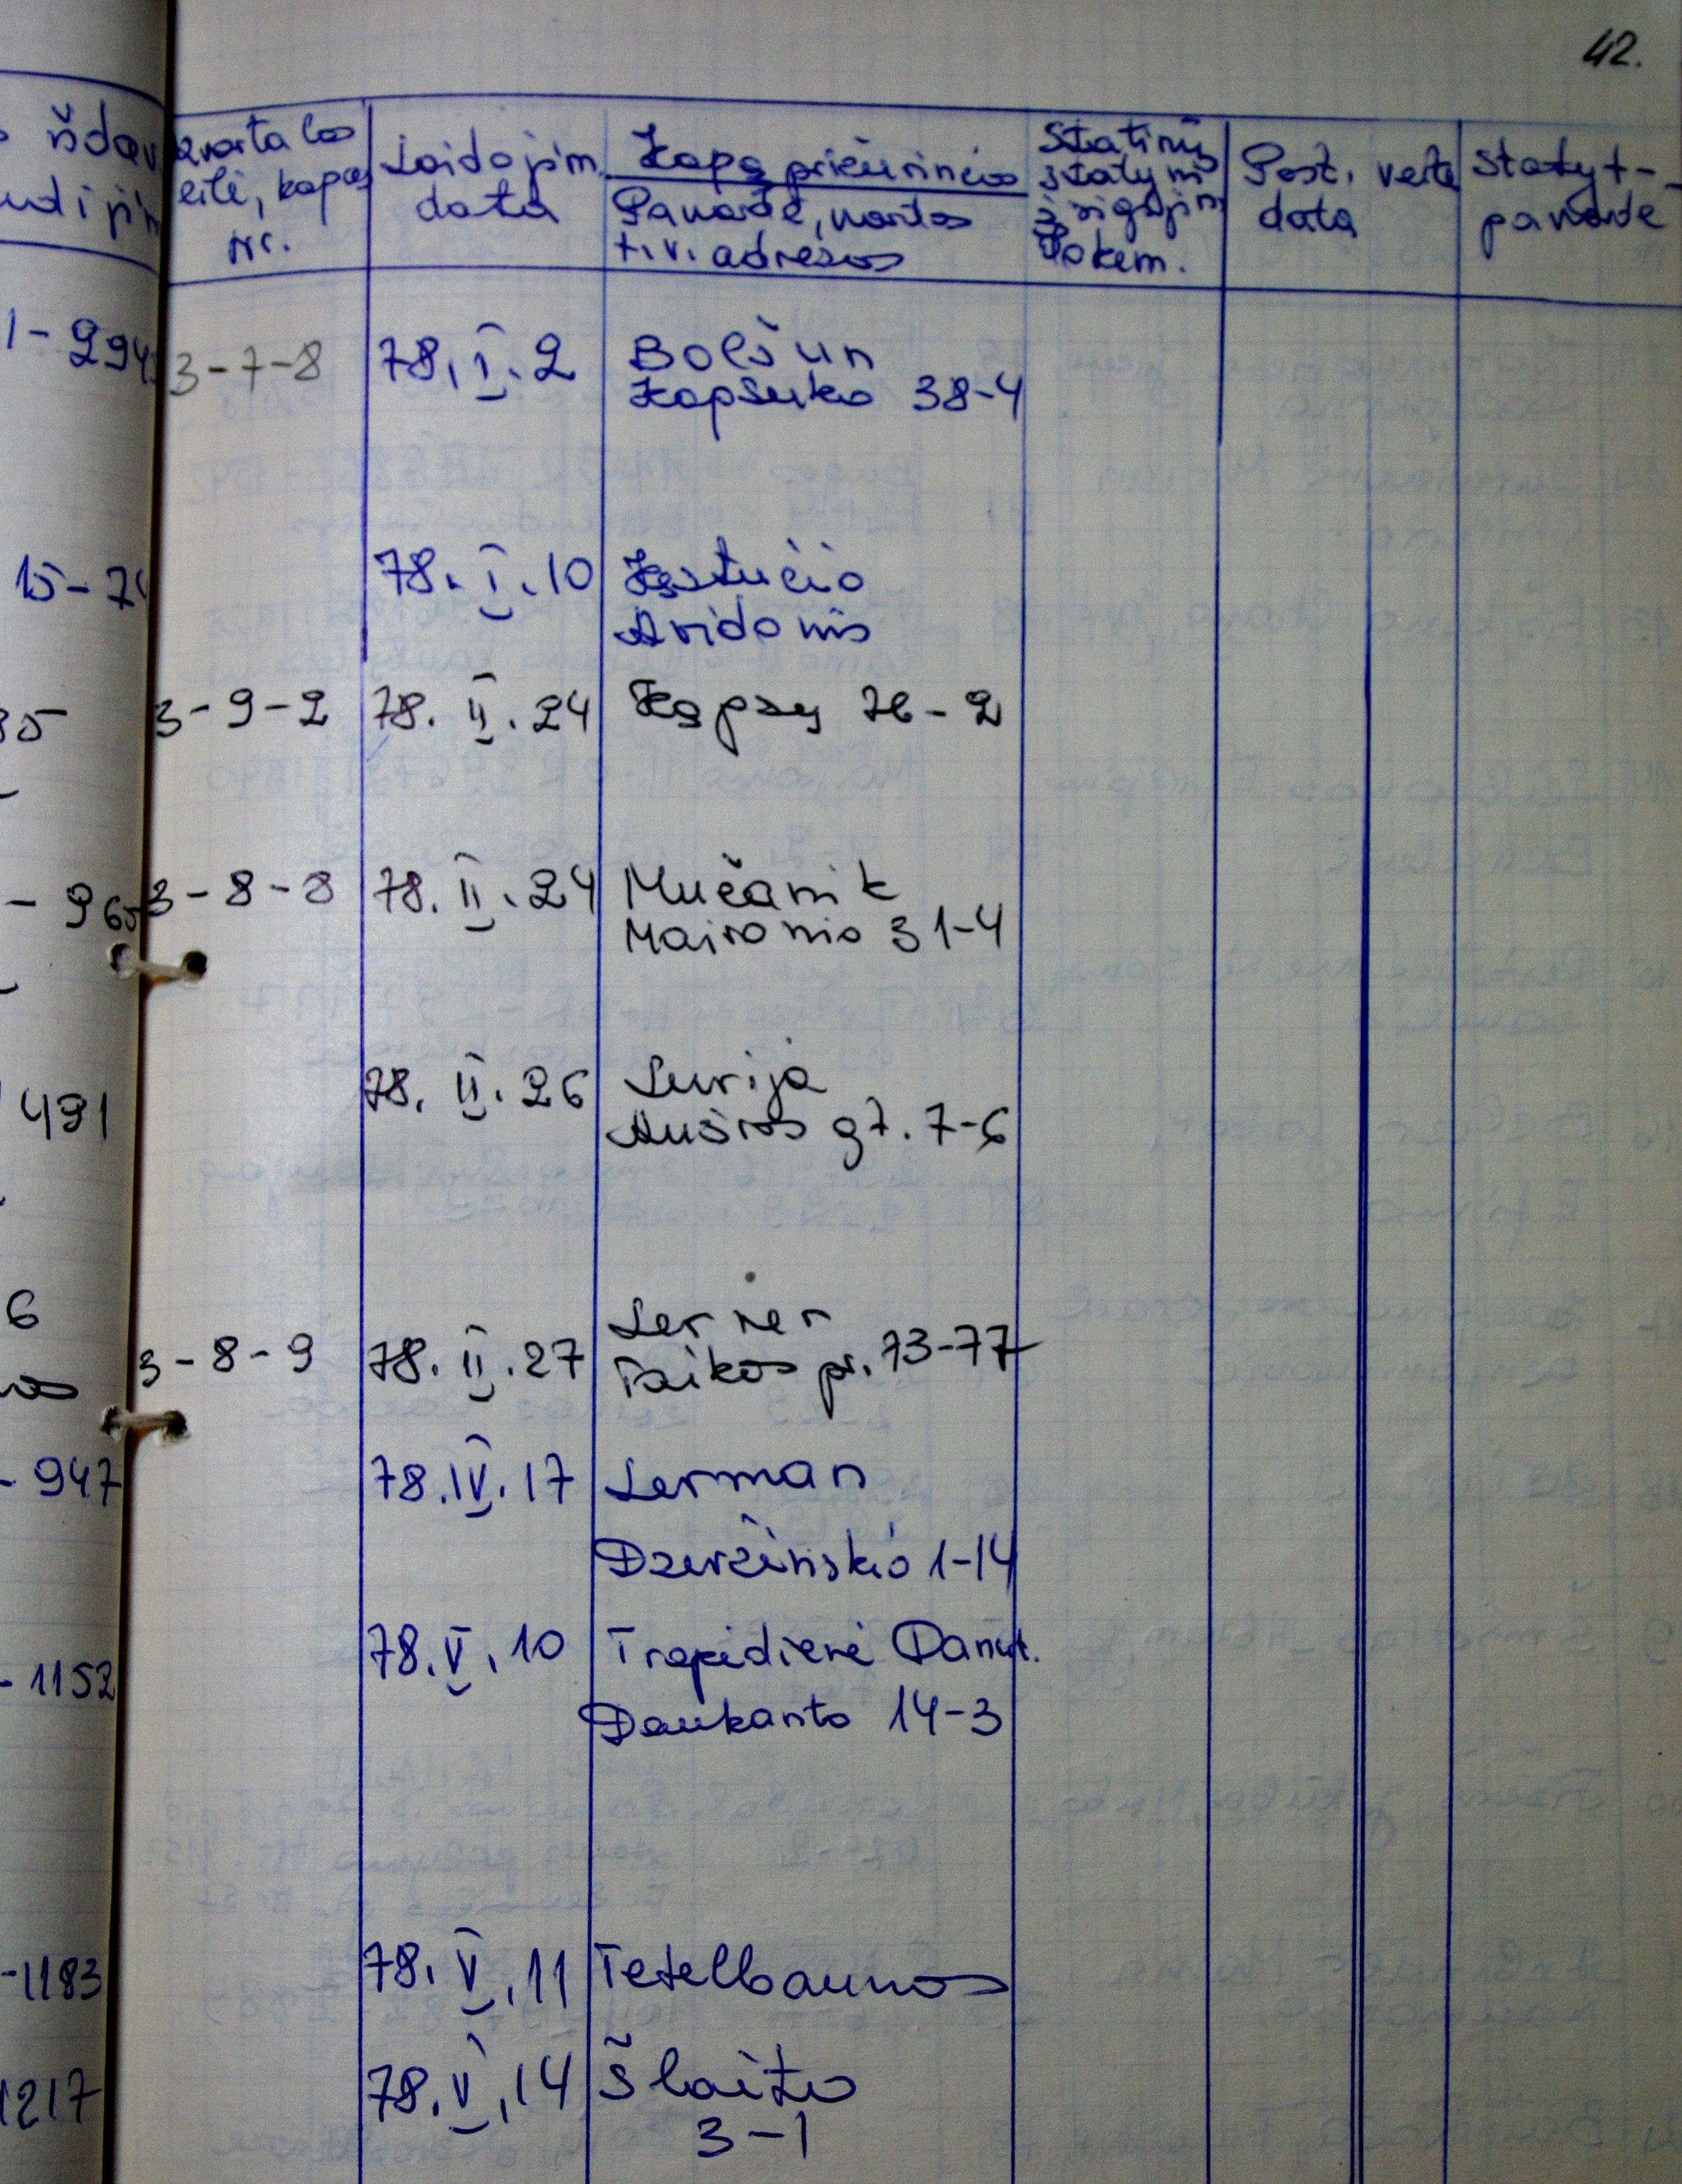 42.
išdav
udijim
kvartalas
eilė, kapas
nr.
Laidojim.
data
Kapą prižiūrinčios
Pavardė, vardas
t.v. adresas
Statinių
statymi
įsigijim
Dokem.
Past. vertė
data
statyt-
pavardė
1-294 3-7-8 78.I.2 Bolšun
Kapsuko 38-4
15-7 78.I.10 Kęstučio
Avidonis
35 3-9-2 78.II.24 76-2
- 965 3-8-8 78.II.24 Mučanik
Maironio 31-4
491 78.II.26 Lurija
Aušros gt. 7-6
6 Lerner
3-8-9 78.II.27 Taikos pr. 73-77
- 947 78.IV.17 Lerman
Dzeržinskio 1-14
-1152 78.V.10 Trapidienė Danut.
Daukanto 14-3
-1183 78.V.11 Tetelbaumas
1217 78.V.14 Šlaito
3-1